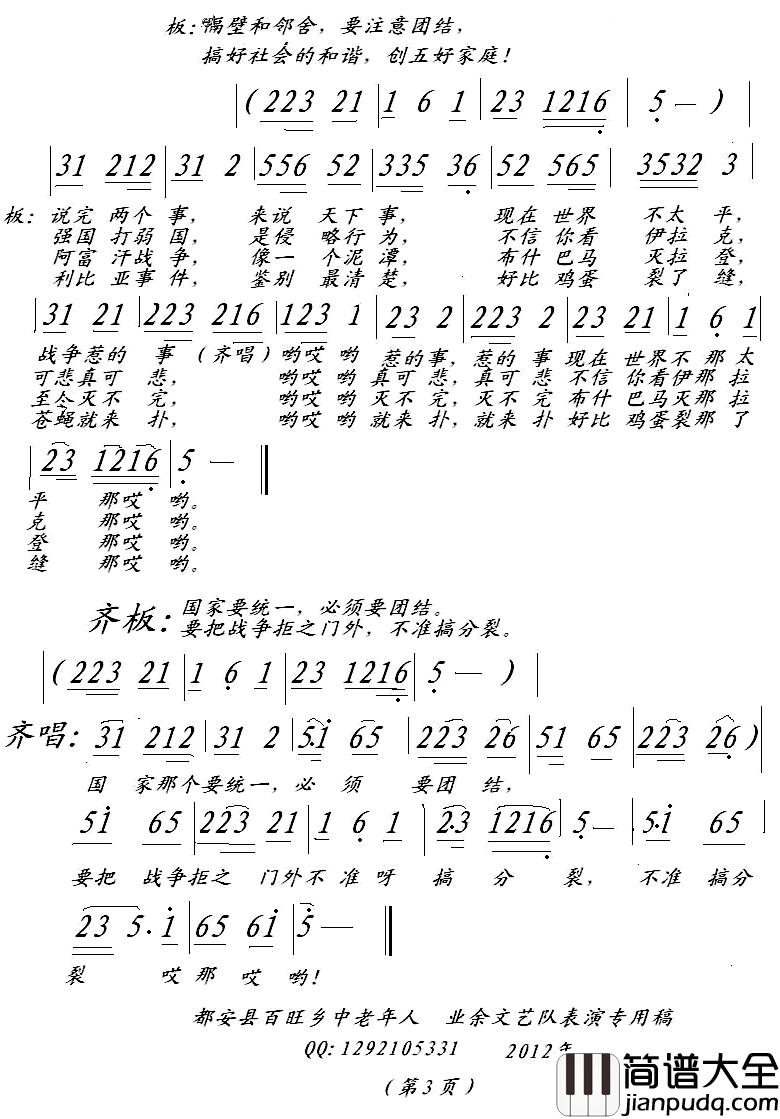 板：隔壁和邻舍，要注意团结，
搞好社会的和谐，创五好家庭！
(223 21 | 1 6 1 | 23 1216 | 5 — )
31 212 | 31 2 | 556 52 | 335 36 | 52 565 | 3532 3 |
板：说完 两个 事， 来说 天下 事， 现在 世界 不太 平，
强国 打弱 国， 是侵 略行 为， 不信 你看 伊拉 克，
阿富 汗战 争， 像一 个泥 潭， 布什 巴马 灭拉 登，
利比 亚事 件， 鉴别 最清 楚， 好比 鸡蛋 裂了 缝，
31 21 | 223 216 | 123 1 | 23 2 | 223 2 | 23 21 | 1 6 1 |
战争惹的 事（齐唱）哟哎 哟 惹的事，惹的 事 现在 世界不 那太
可悲真可 悲， 哟哎 哟 真可悲，真可 悲 不信 你看伊那 拉
至今灭不 完， 哟哎 哟 灭不完，灭不 完 布什 巴马灭那 拉
苍蝇就来 扑， 哟哎 哟 就来扑，就来 扑 好比 鸡蛋裂那 了
23 1216 | 5 — ‖
平 那哎 哟。
克 那哎 哟。
登 那哎 哟。
缝 那哎 哟。
齐板：国家要统一，必须要团结。
要把战争拒之门外，不准搞分裂。
(223 21 | 1 6 1 | 23 1216 | 5 — ) |
齐唱：31 212 | 31 2 | 5·i 65 | 223 26 | 51 65 | 223 26 )
国 家那个要统一，必 须 要团 结，
5i 65 | 223 21 | 1 6 1 | 2·3 1216 | 5 — | 5·i 65 |
要把 战争拒之 门外不 准 呀 搞 分 裂， 不准 搞分
23 5· i | 65 6i | 5 — ‖
裂 哎 那 哎 哟！
都安县百旺乡中老年人 业余文艺队表演专用稿
QQ：1292105331 2012年
（第3页）
简谱大全
jianpudq.com